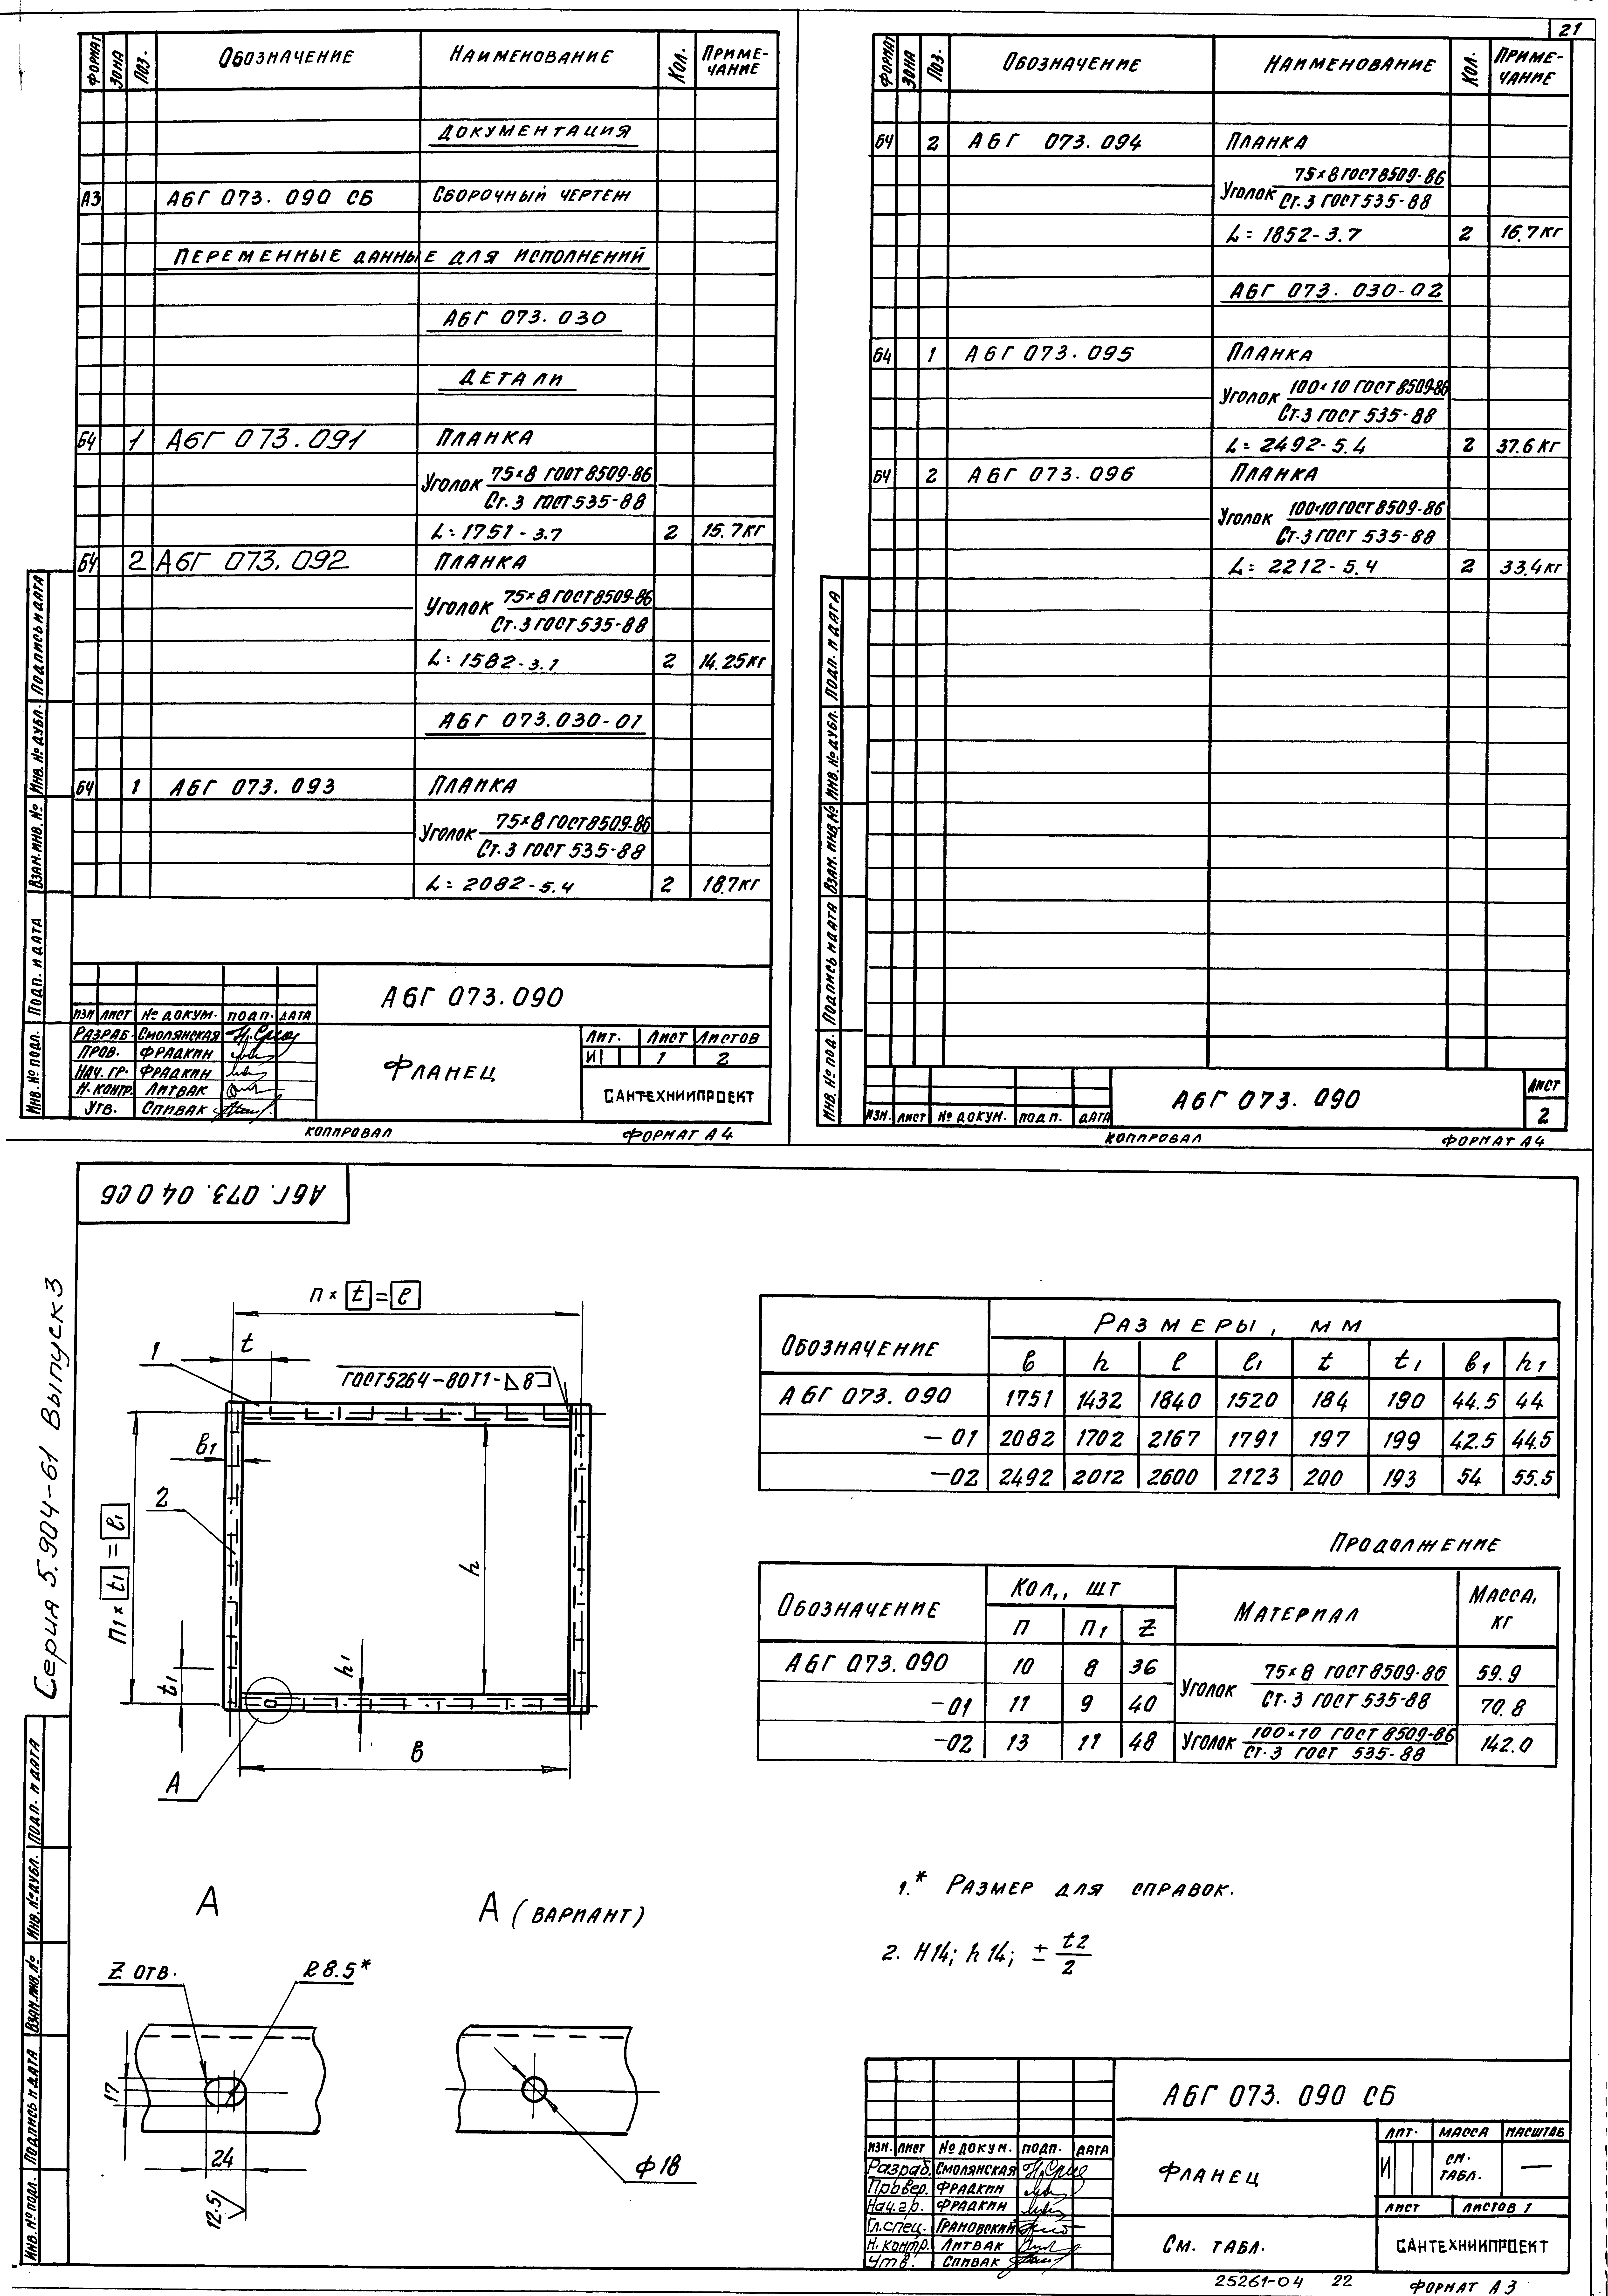 ФОРМАТ ЗОНА ПОЗ. ОБОЗНАЧЕНИЕ НАИМЕНОВАНИЕ КОЛ. ПРИМЕ-ЧАНИЕ
ДОКУМЕНТАЦИЯ
А3 А6Г 073. 090 СБ СБОРОЧНЫЙ ЧЕРТЕЖ
ПЕРЕМЕННЫЕ ДАННЫЕ ДЛЯ ИСПОЛНЕНИЙ
А6Г 073. 030
ДЕТАЛИ
Б4 1 А6Г 073. 091 ПЛАНКА
УГОЛОК 75×8 ГОСТ 8509-86
Ст. 3 ГОСТ 535-88
L= 1751 - 3.7 2 15.7 КГ
Б4 2 А6Г 073. 092 ПЛАНКА
УГОЛОК 75×8 ГОСТ 8509-86
Ст. 3 ГОСТ 535-88
L= 1582 - 3.1 2 14.25 КГ
А6Г 073.030-01
Б4 1 А6Г 073. 093 ПЛАНКА
УГОЛОК 75×8 ГОСТ 8509-86
Ст. 3 ГОСТ 535-88
L= 2082 - 5.4 2 18.7 КГ
ИНВ. № ПОДЛ. ПОДП. И ДАТА ВЗАМ. ИНВ. № ИНВ. № ДУБЛ. ПОДПИСЬ И ДАТА
А6Г 073.090
ИЗМ ЛИСТ № ДОКУМ. ПОДП. ДАТА
РАЗРАБ. СМОЛЯНСКАЯ
ПРОВ. ФРАДКИН
НАЧ. ГР. ФРАДКИН
Н. КОНТР. ЛИТВАК
УТВ. СПИВАК
ФЛАНЕЦ
ЛИТ. ЛИСТ ЛИСТОВ
И 1 2
САНТЕХНИИПРОЕКТ
КОПИРОВАЛ ФОРМАТ А4
21
ФОРМАТ ЗОНА ПОЗ. ОБОЗНАЧЕНИЕ НАИМЕНОВАНИЕ КОЛ. ПРИМЕ-ЧАНИЕ
Б4 2 А6Г 073. 094 ПЛАНКА
УГОЛОК 75×8 ГОСТ 8509-86
Ст. 3 ГОСТ 535-88
L= 1852 - 3.7 2 16.7 КГ
А6Г 073. 030-02
Б4 1 А6Г 073. 095 ПЛАНКА
УГОЛОК 100×10 ГОСТ 8509-86
Ст. 3 ГОСТ 535-88
L= 2492 - 5.4 2 37.6 КГ
Б4 2 А6Г 073. 096 ПЛАНКА
УГОЛОК 100×10 ГОСТ 8509-86
Ст. 3 ГОСТ 535-88
L= 2212 - 5.4 2 33.4 КГ
ИНВ. № ПОД. ПОДПИСЬ И ДАТА ВЗАМ. ИНВ. № ИНВ. № ДУБЛ. ПОДП. И ДАТА
ИЗМ. ЛИСТ № ДОКУМ. ПОДП. ДАТА
А6Г 073. 090
ЛИСТ
2
КОПИРОВАЛ ФОРМАТ А4
А6Г. 073. 040СБ
Серия 5.904-61 Выпуск 3
п × t = ℓ
t
1
ГОСТ 5264-80Т1-⊿8⊐
в1
2
п1 × t1 = ℓ1
h
t1
h1
в
А
ОБОЗНАЧЕНИЕ РАЗМЕРЫ, ММ
в h ℓ ℓ1 t t1 в1 h1
А6Г 073.090 1751 1432 1840 1520 184 190 44.5 44
— 01 2082 1702 2167 1791 197 199 42.5 44.5
—02 2492 2012 2600 2123 200 193 54 55.5
ПРОДОЛЖЕНИЕ
ОБОЗНАЧЕНИЕ КОЛ., ШТ МАТЕРИАЛ МАССА, КГ
п п1 Z
А6Г 073.090 10 8 36 УГОЛОК 75×8 ГОСТ 8509-86 59.9
—01 11 9 40 Ст. 3 ГОСТ 535-88 70.8
—02 13 11 48 УГОЛОК 100×10 ГОСТ 8509-86 142.0
Ст. 3 ГОСТ 535-88
А
Z ОТВ. R 8.5*
17
24
12.5
А (ВАРИАНТ)
ф 18
1.* РАЗМЕР ДЛЯ СПРАВОК.
2. H14; h14; ± t2/2
ИНВ. № ПОДЛ. ПОДПИСЬ И ДАТА ВЗАМ. ИНВ. № ИНВ. № ДУБЛ. ПОДП. И ДАТА
А6Г 073. 090 СБ
ИЗМ. ЛИСТ № ДОКУМ. ПОДП. ДАТА
Разраб. СМОЛЯНСКАЯ
Провер. ФРАДКИН
Нач. гр. ФРАДКИН
Гл. спец. ГРАНОВСКИЙ
Н. контр. ЛИТВАК
Утв. СПИВАК
ФЛАНЕЦ
СМ. ТАБЛ.
ЛИТ. МАССА МАСШТАБ
И СМ. ТАБЛ. —
ЛИСТ ЛИСТОВ 1
САНТЕХНИИПРОЕКТ
25261-04 22 ФОРМАТ А3